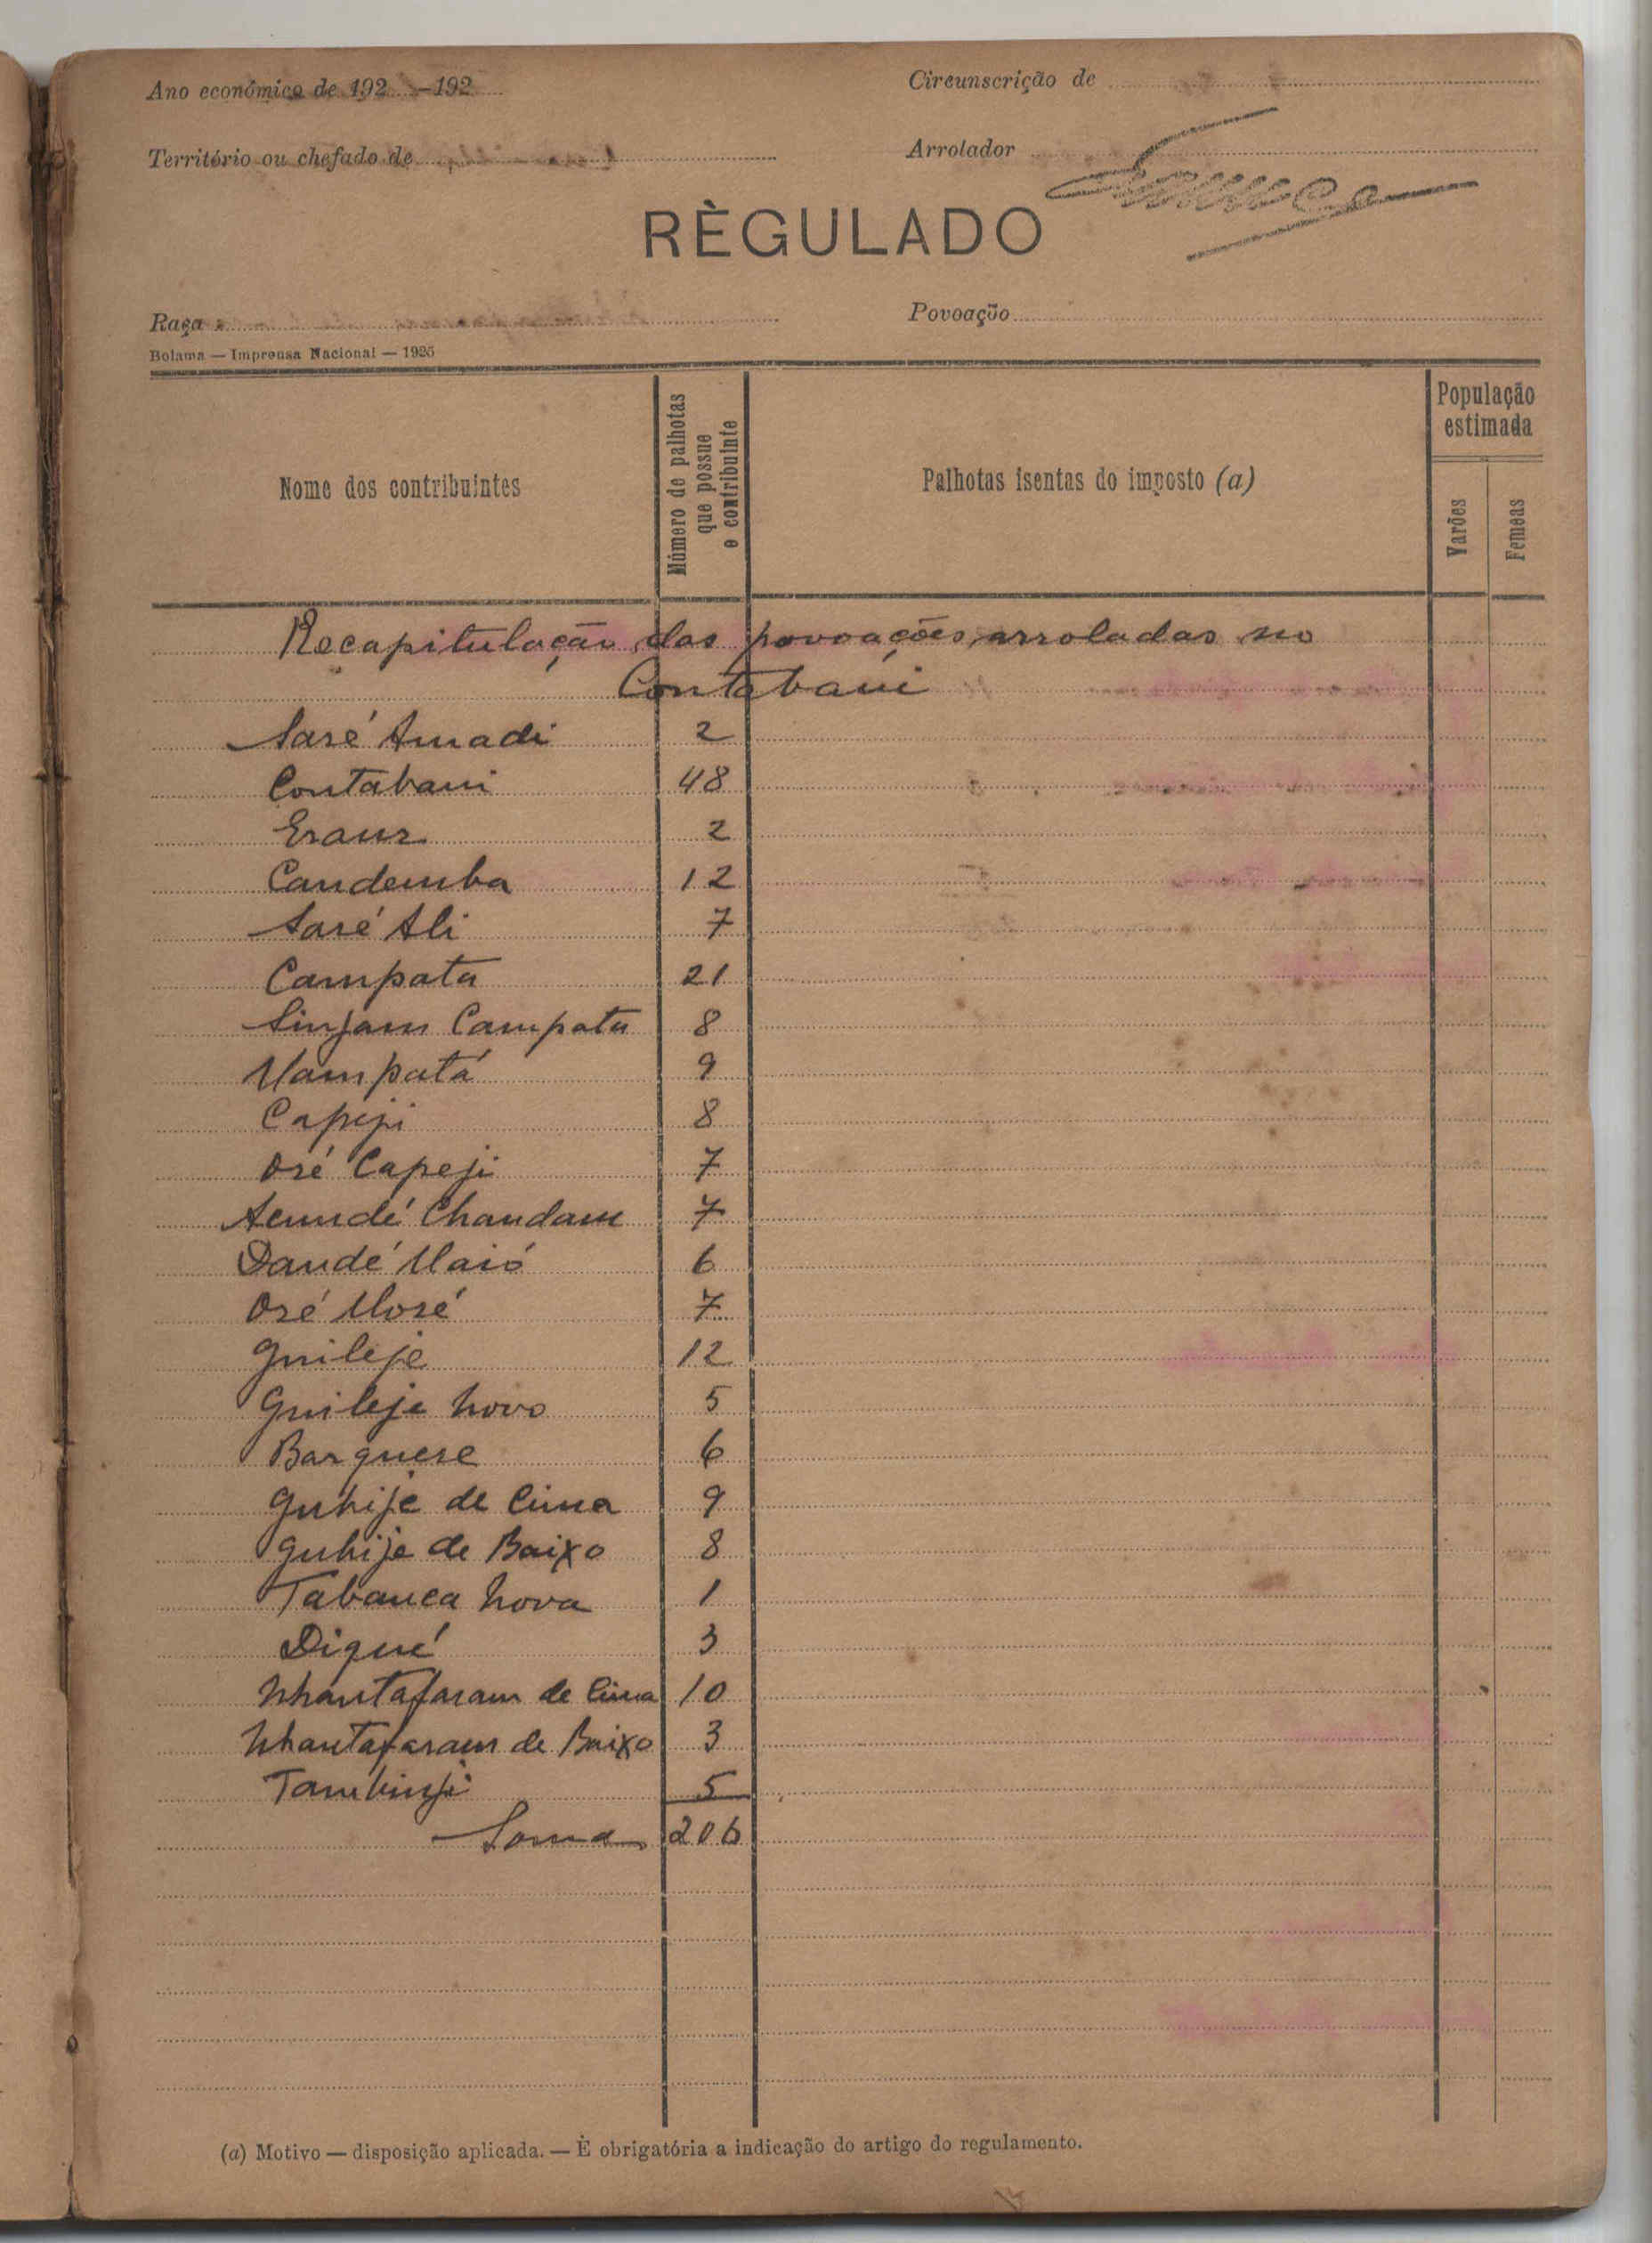 Ano económico de 192 —192
Circunscrição de
Território ou chefado de
Arrolador
RÈGULADO
Raça
Povoação
Bolama — Imprensa Nacional — 1925
Nome dos contribuintes
Número de palhotas que possue o contribuinte
Palhotas isentas do imposto (a)
População estimada
Varões
Femeas
Recapitulação das povoações arroladas no
Contabani
Saré Amadi 2
Contabani 48
2
Candemba 12
Saré Ali 7
Campata 21
Sinjam Campata 8
Mampatá 9
Capeji 8
Oré Capeji 7
Chandam 7
Dandé Maió 6
Oré Moré 7
Guileje 12
Guileje Novo 5
Barquere 6
Guhije de Cima 9
Guhije de Baixo 8
Tabanca Nova 1
Diqué 3
Nhantafaram de Cima 10
Nhantafaram de Baixo 3
Tambinji 5
Soma 206
(a) Motivo — disposição aplicada. — È obrigatória a indicação do artigo do regulamento.